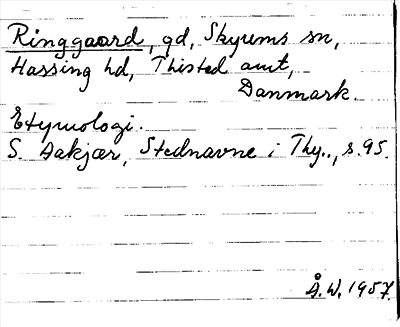 Ringgaard, gd, Skyums sn,
Hassing hd, Thisted amt,
Danmark.
Etymologi.
S. Aakjær, Stednavne i Thy.., s. 95.
Å. W. 1957.